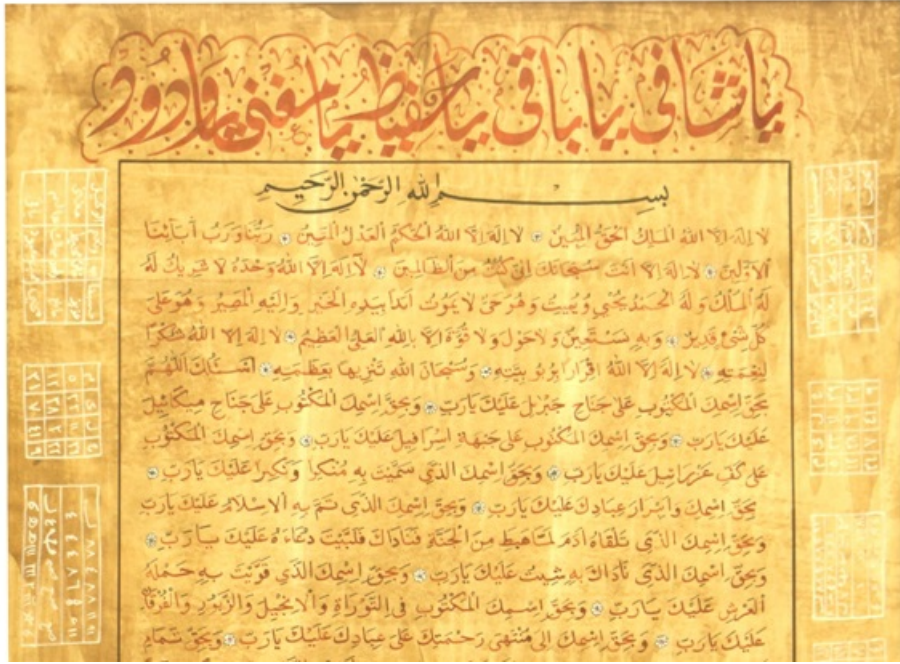 يا شافي يا باقي يا حفيظ يا مغني يا ودود
بسم الله الرحمن الرحيم
لا اله الا الله الملك الحق المبين لا اله الا الله الحكم العدل المتين ربنا ورب آبائنا
الاولين لا اله الا انت سبحانك اني كنت من الظالمين لا اله الا الله وحده لا شريك له
له الملك وله الحمد يحيي ويميت وهو حي لا يموت ابدا بيده الخير واليه المصير وهو على
كل شئ قدير وبه نستعين ولا حول ولا قوة الا بالله العلي العظيم لا اله الا الله شكرا
لنعمته لا اله الا الله اقرارا بربوبيته وسبحان الله تنزيها بعظمته اسئلك اللهم
بحق اسمك المكتوب على جناح جبرئيل عليك يارب وبحق اسمك المكتوب على جناح ميكائيل
عليك يارب وبحق اسمك المكتوب على جبهة اسرافيل عليك يارب وبحق اسمك المكتوب
على كف عزرائيل عليك يارب وبحق اسمك الذي سميت به منكرا ونكيرا عليك يارب
بحق اسمك واسرار عبادك عليك يارب وبحق اسمك الذي تم به الاسلام عليك يارب
وبحق اسمك الذي تلقاه ادم لما هبط من الجنة فناداك فلبيت دعاءه عليك يارب
وبحق اسمك الذي ناداك به شيث عليك يارب وبحق اسمك الذي قويت به حملة
العرش عليك يارب وبحق اسمك المكتوب في التوراة والانجيل والزبور والفرقان
عليك يارب وبحق اسمك الى منتهى رحمتك على عبادك عليك يارب وبحق تمام